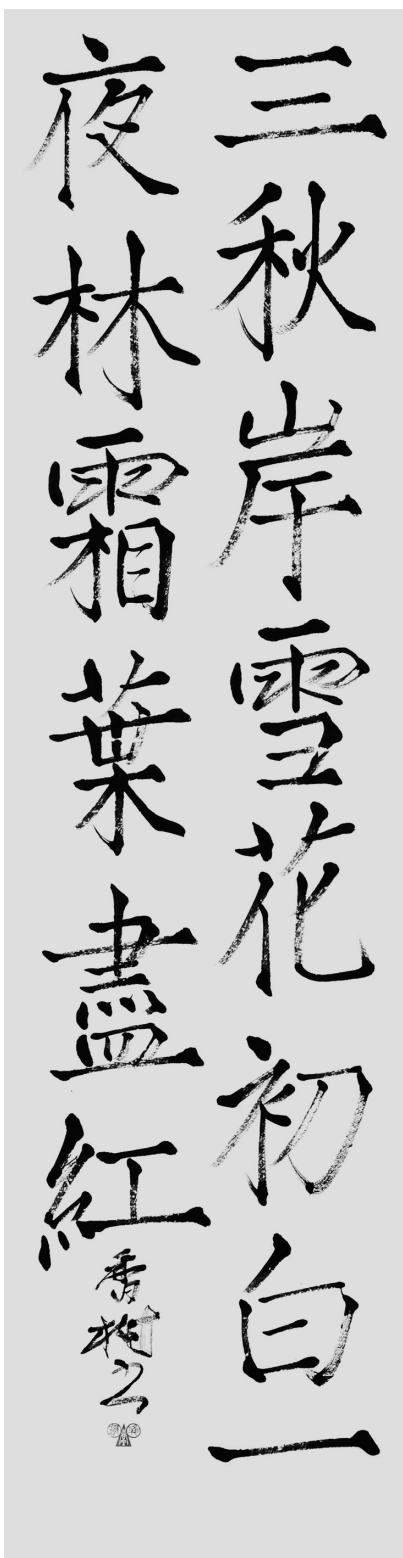 三秋岸雪花初白一
夜林霜葉盡紅
香樹